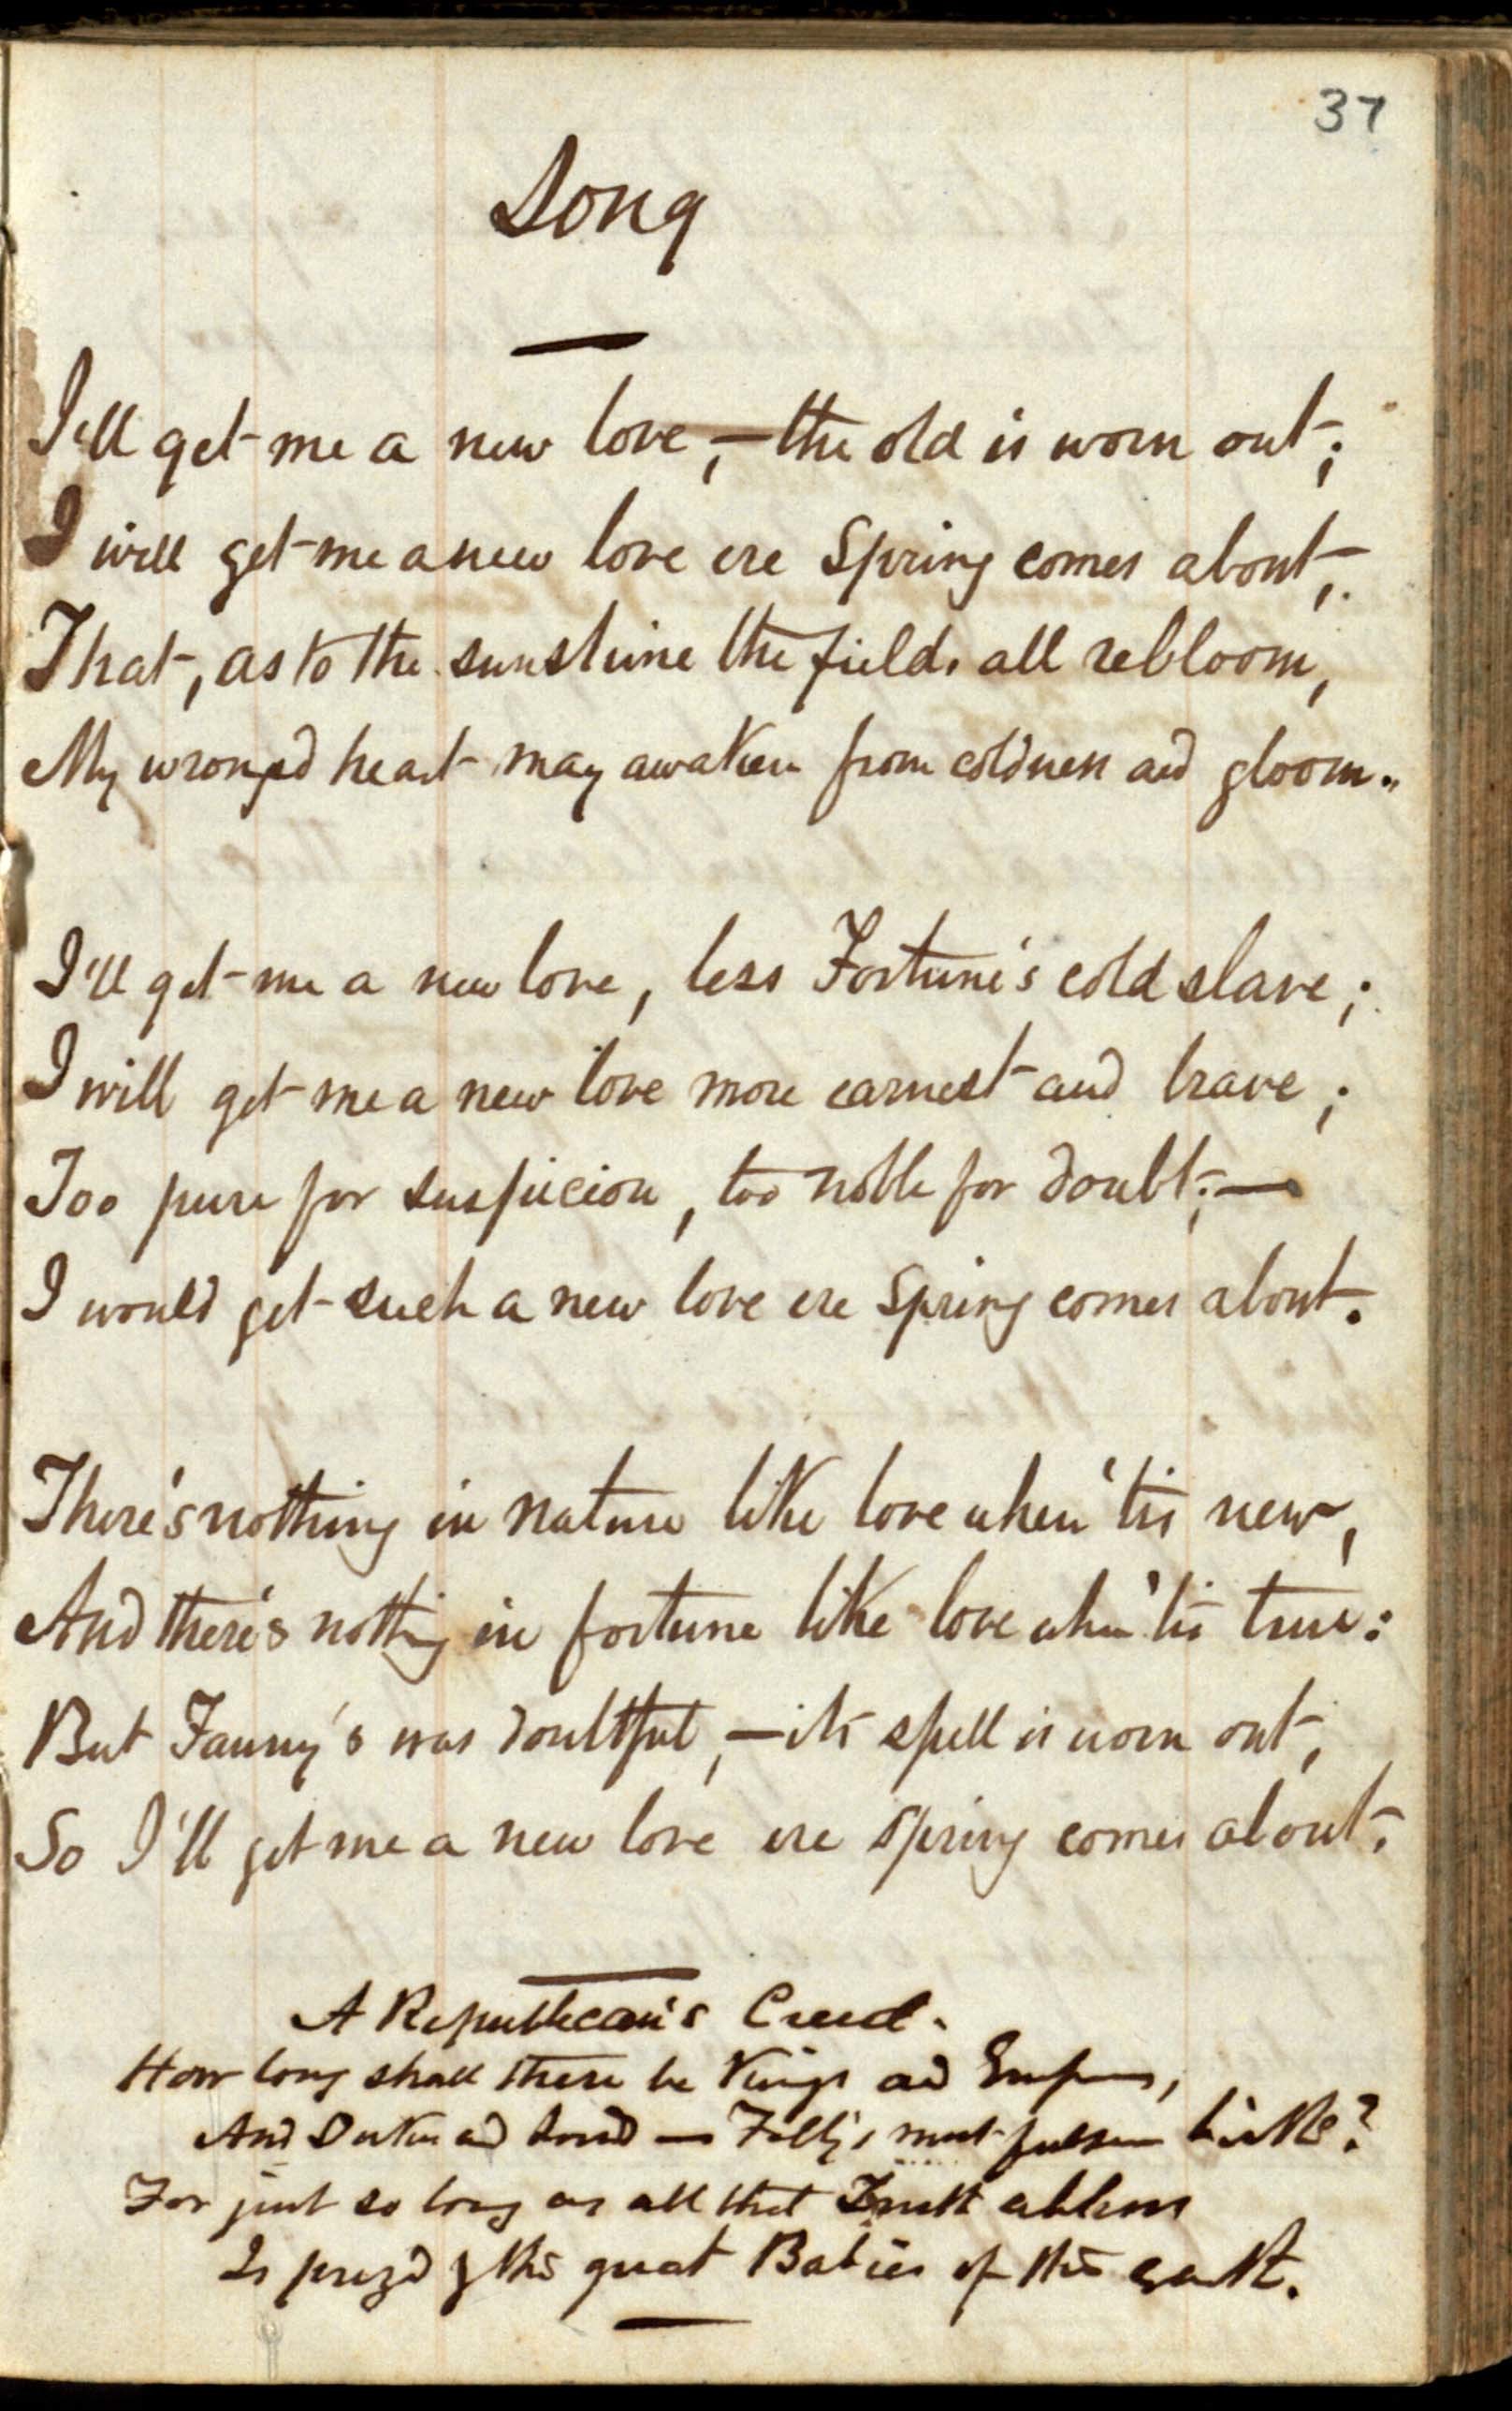 37
Song
I'll get me a new love,— the old is worn out;
I will get me a new love ere Spring comes about;
That, as to the sunshine the fields all rebloom,
My wronged heart may awaken from coldness and gloom.
I'll get me a new love, less Fortune's cold slave;
I will get me a new love more earnest and brave;
Too pure for suspicion, too noble for doubt;—
I would get such a new love ere Spring comes about.
There's nothing in nature like love when 'tis new,
And there's nothing in fortune like love when 'tis true:
But Fanny's was doubtful,—its spell is worn out,
So I'll get me a new love ere Spring comes about.
A Republican's Creed.
How long shall there be Kings and
And Dukes and Lords — Folly's most fulsome births?
For just so long as all that Truth abhors
Is prized by the great Babies of the earth.